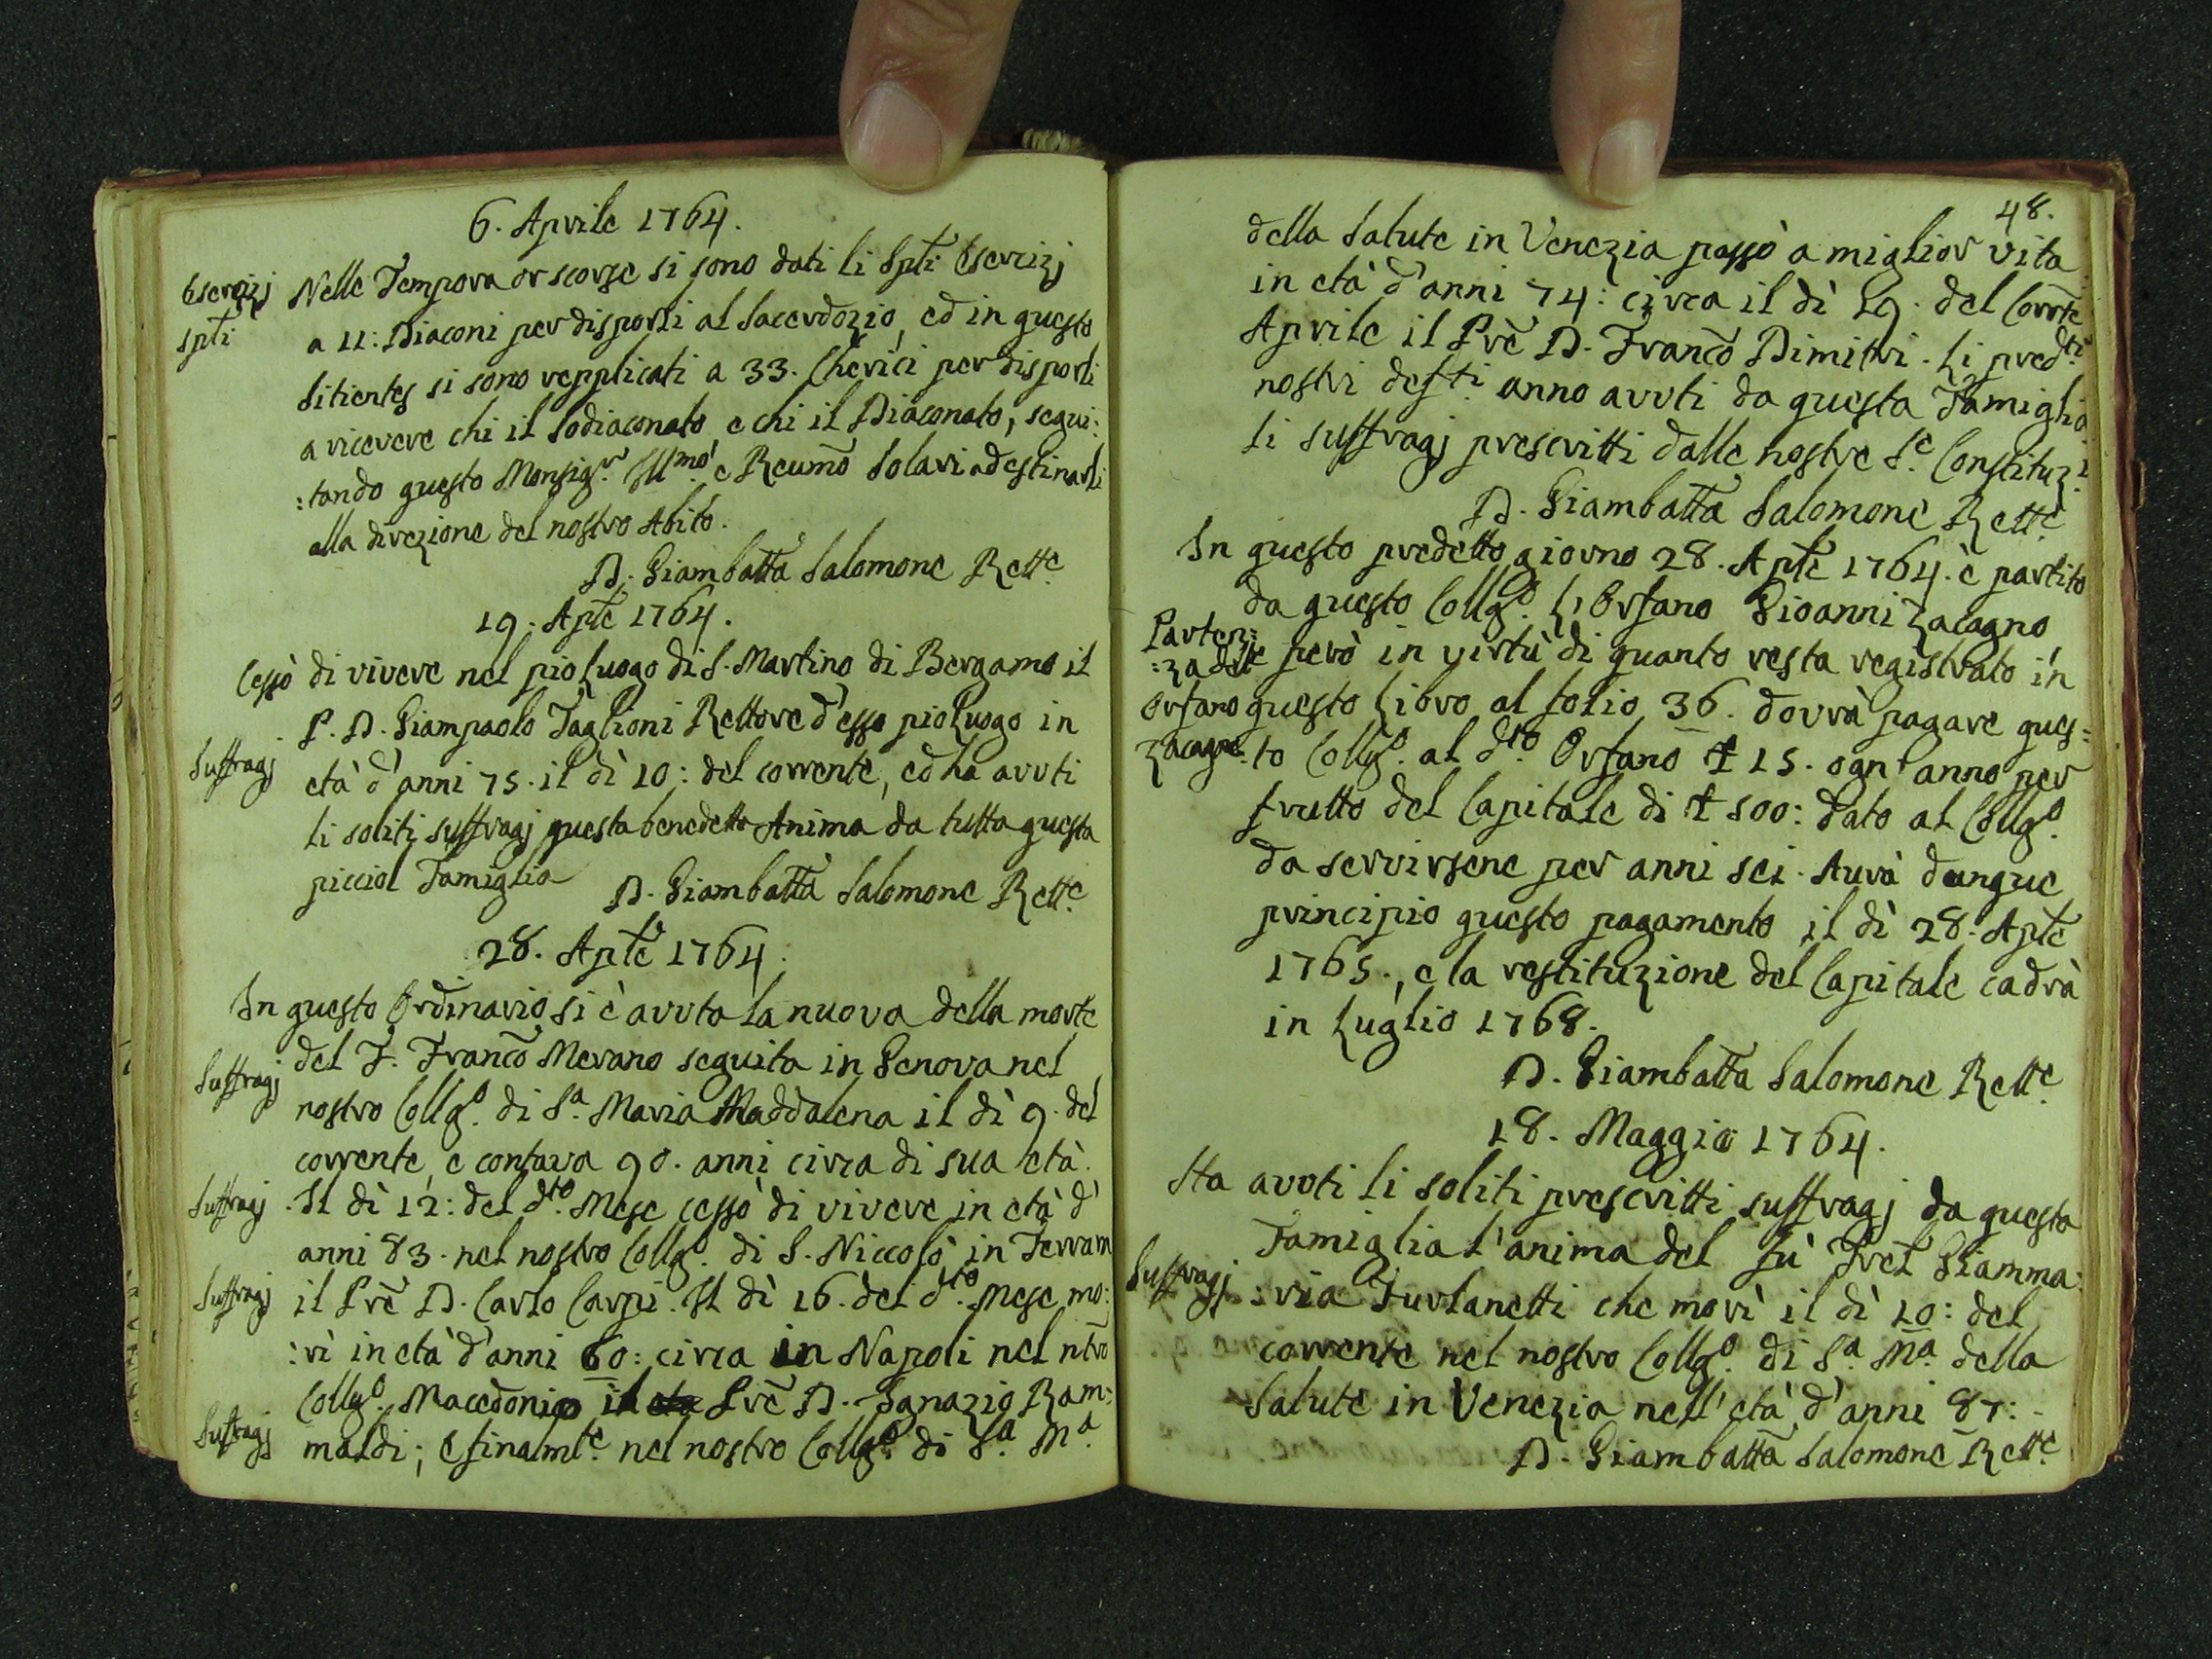 6. Aprile 1764.
Esercizj Nelle Tempora or scorse si sono dati li Spti Esercizj
Spti a 11: Diaconi per disporli al Sacerdozio, ed in questo
sitientes si sono repplicati a 33. Cherici per disporli
a ricevere chi il sodiaconato e chi il Diaconato, segui:
:tando questo Monsigr. Illmo. e Reumo Solari ad estinarli
alla direzione del nostro Abito.
D. Giambatta Salomone Rette.
19. Aple 1764.
Cessò di vivere nel pio Luogo di S. Martino di Bergamo il
P. D. Giampaolo Taglioni Rettore d'esso pio Luogo in
Suffragj età d'anni 75. il dì 10: del corrente, ed ha avuti
li soliti suffragj questa benedetta Anima da tutta questa
picciol Famiglia
D. Giambatta Salomone Rette.
28. Aple 1764.
In questo Ordinario si è avuta la nuova della morte
Suffragj del F. Franco Merano seguita in Genova nel
nostro Collgo. di Sa. Maria Maddalena il dì 9. del
corrente, e contava 90. anni circa di sua età.
Suffragj Il dì 12: del dto. Mese cessò di vivere in età d'
anni 83. nel nostro Collgo. di S. Niccolò in Ferram
Suffragj il Pre D. Carlo Carpi. Il dì 16. del dto. Mese mo:
:rì in età d'anni 60: circa in Napoli nel ntro
Collgo. Macedonio il Pre D. Ignazio Ram:
Suffragj maldi; e finalmte. nel nostro Collgo. di Sa. Ma.
48.
della Salute in Venezia passò a miglior vita
in età d'anni 74: circa il dì 19. del Corrte
Aprile il Pre D. Franco Dimitri. Li predti.
nostri defti. anno avuti da questa Famiglia
li suffragj prescritti dalle nostre Se. Constituzi.
D. Giambatta Salomone Rette.
In questo predetto giorno 28. Aple 1764. è partito
da questo Collgo. L'Orfano Gioanni Zacagno
Parten:
:za dell' però in virtù di quanto resta registrato in
Orfano questo Libro al folio 36. dovrà pagare ques:
Zacagno. to Collgo. al dto. Orfano ₤ 15. ogn'anno per
frutto del Capitale di ₤ 500: dato al Collgo.
da servirsene per anni sei. Aurà dunque
principio questo pagamento il dì 28. Aple
1765., e la restituzione del Capitale cadrà
in Luglio 1768.
D. Giambatta Salomone Rette.
18. Maggio 1764.
Ha avuti li soliti prescritti suffragj da questa
Famiglia l'anima del fù Frel Giamma:
Suffragj :ria Furlanetti che morì il dì 10: del
corrente nel nostro Collgo. di Sa. Ma. della
Salute in Venezia nell'età d'anni 87:
D. Giambatta Salomone Rette.